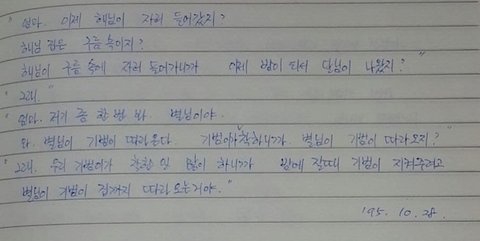 " 엄마. 이제 해님이 자러 들어갔지?
해님 집은 구름 속이지?
해님이 구름 속에 자러 들어가니까 이제 밤이 되서 달님이 나왔지?"
" 그래."
" 엄마. 저기 좀 한 번 봐. 별님이야.
와. 별님이 기범이 따라온다. 기범이가 착하니까. 별님이 기범이 따라오지?"
" 그래. 우리 기범이가 착한 일 많이 하니까 밤에 잘때 기범이 지켜주려고
별님이 기범이 집까지 따라 오는거야."
'95. 10. 28.